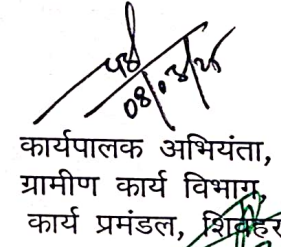 08/03/26
कार्यपालक अभियंता,
ग्रामीण कार्य विभाग,
कार्य प्रमंडल, शिवहर